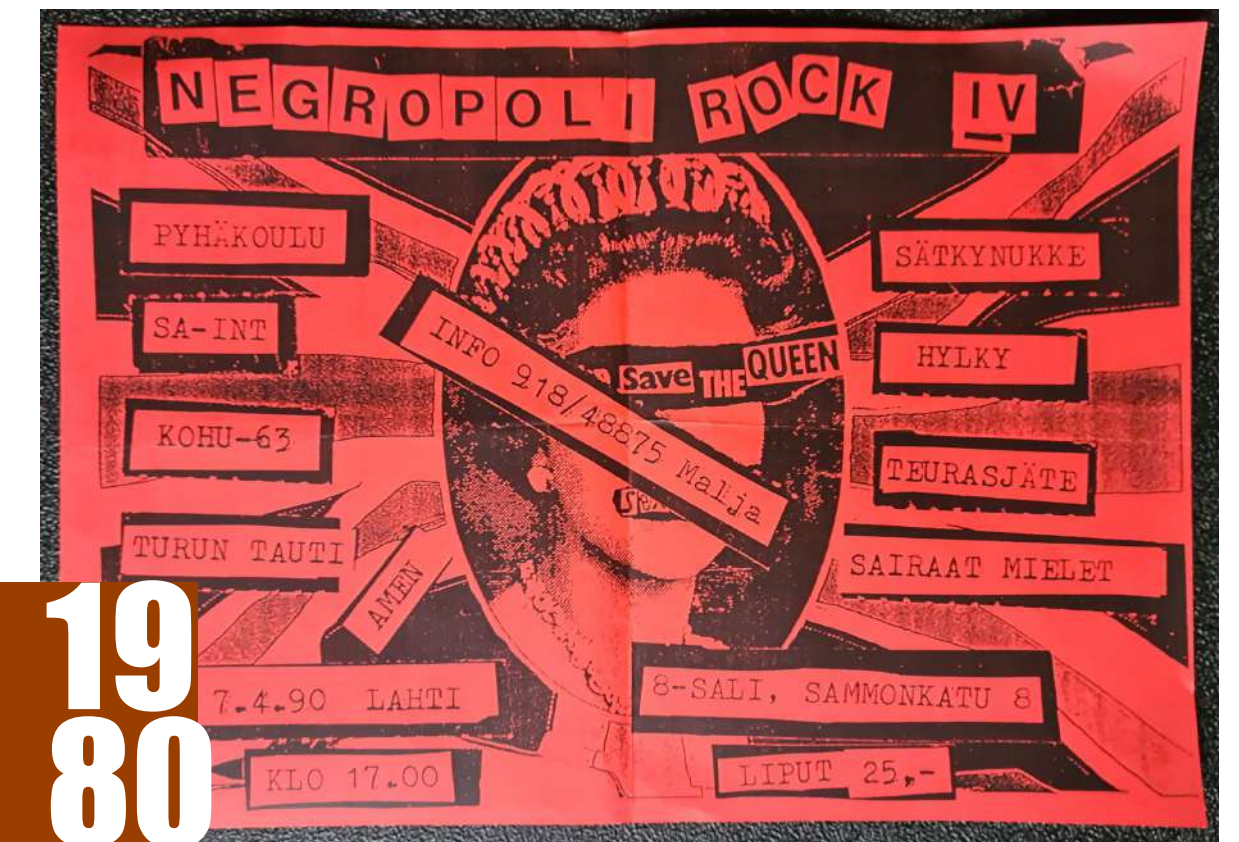 NEGROPOLI ROCK IV
PYHÄKOULU
SA-INT
KOHU-63
TURUN TAUTI
AMEN
INFO 918/48875 Malja
Save THE QUEEN
SÄTKYNUKKE
HYLKY
TEURASJÄTE
SAIRAAT MIELET
7.4.90 LAHTI
8-SALI, SAMMONKATU 8
KLO 17.00
LIPUT 25,-
19
80